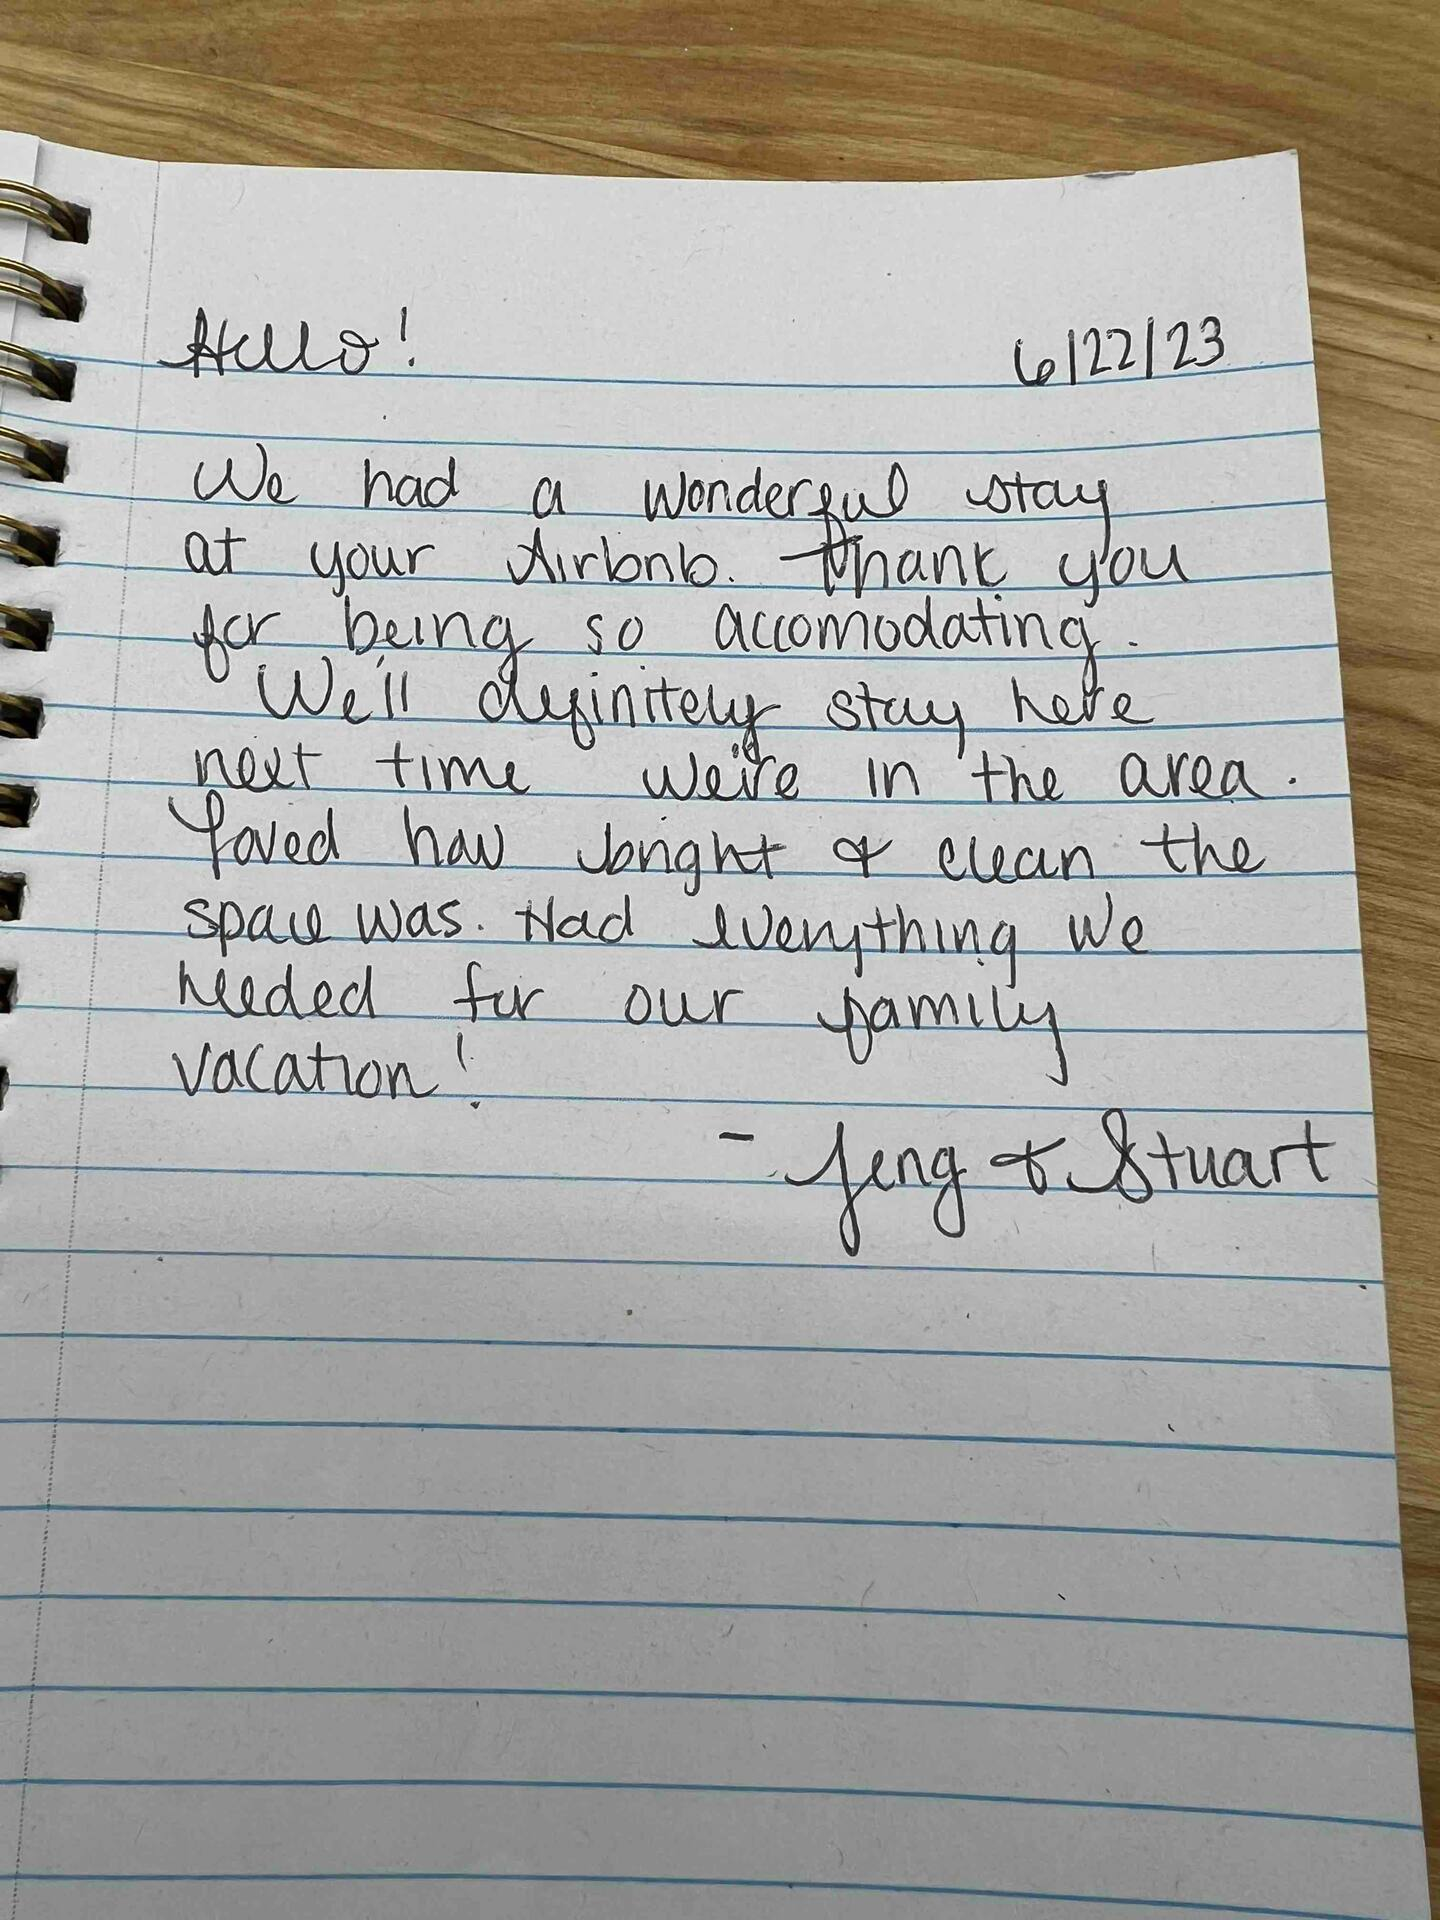 Hello! 6/22/23
We had a wonderful stay
at your Airbnb. Thank you
for being so accomodating.
We'll definitely stay here
next time we're in the area.
Loved how bright & clean the
space was. Had everything we
needed for our family
vacation!
- Jeng & Stuart